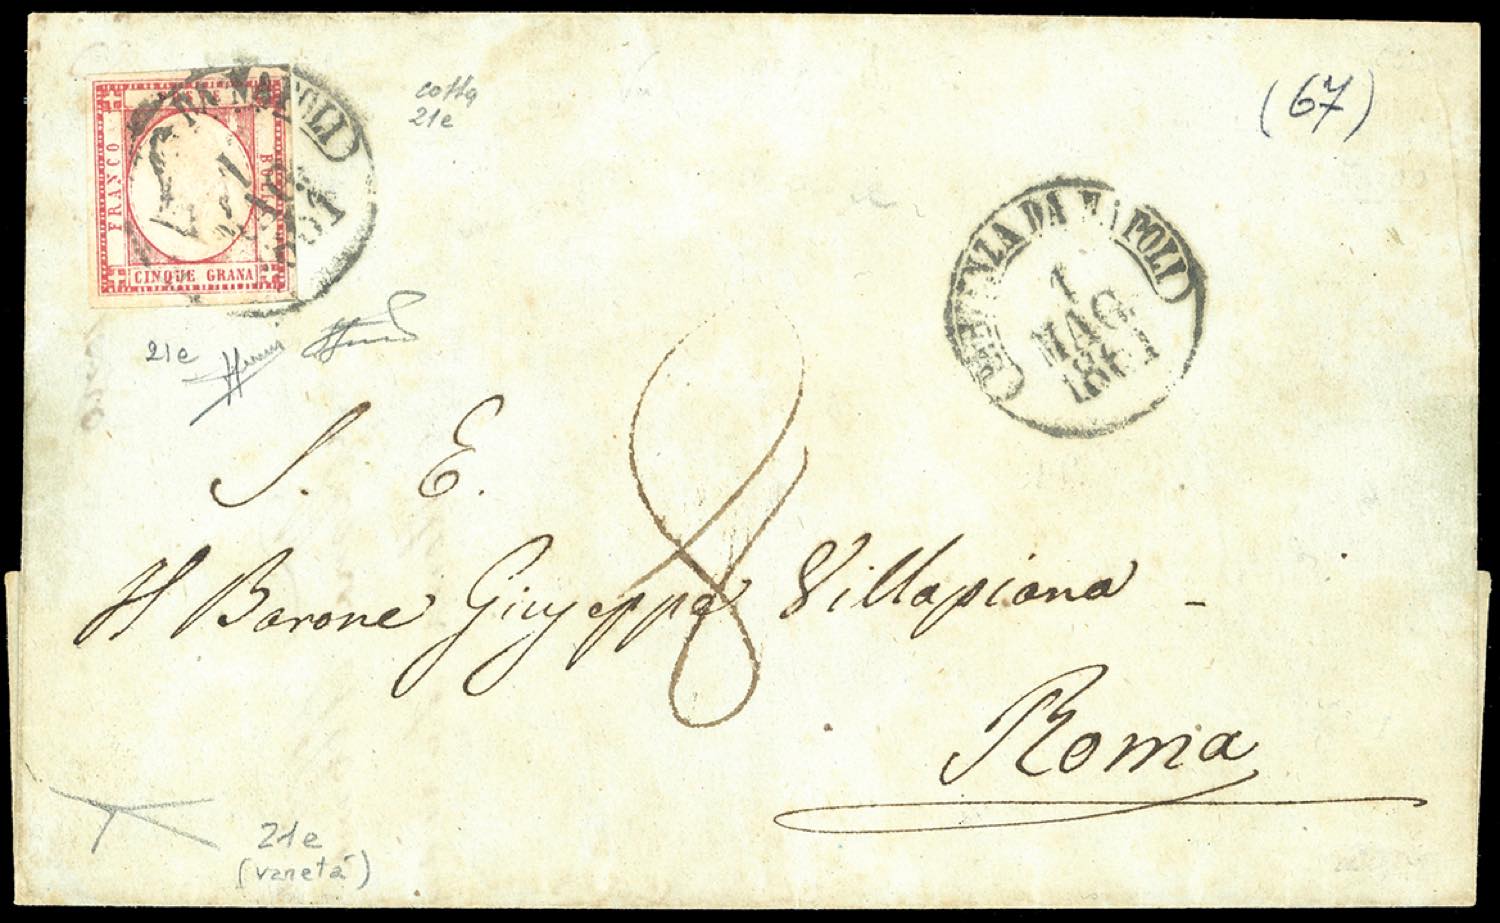 FRANCO
BOL
CINQUE GRANA
DA NAPOLI
1
MAG
1861
cotta
21e
(67)
PARTENZA DA NAPOLI
1
MAG
1861
21e
8
S. E.
Il Barone Giuseppe Villapiana -
Roma
21e
(varietá)